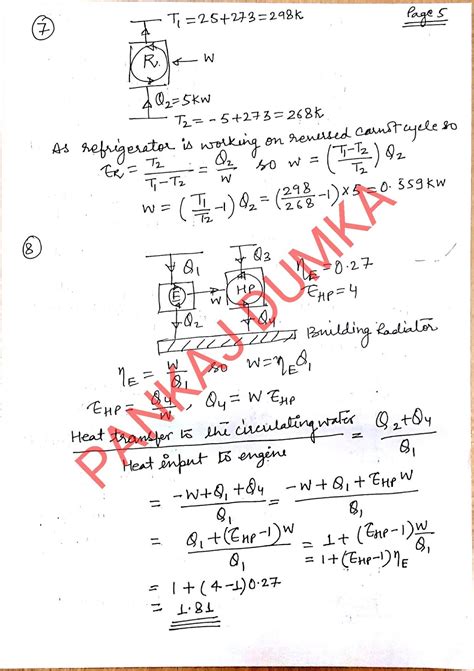 Page 5
7
T₁ = 25+273 = 298K
R
W
Q₂ = 5KW
T₂ = -5+273 = 268K
As refrigerator is working on reversed carnot cycle so
ԐR = T₂/(T₁-T₂) = Q₂/W so W = ((T₁-T₂)/T₂) Q₂
W = (T₁/T₂ -1) Q₂ = (298/268 -1) × 5 = 0.559 KW
8
Q₁ Q₃
E W HP
Q₂ Q₄
ηE = 0.27
ԐHP = 4
Building Radiator
ηE = W/Q₁ so W = ηE Q₁
ԐHP = Q₄/W , Q₄ = W ԐHP
Heat transfer to the circulating water / Heat input to engine = (Q₂+Q₄)/Q₁
= (-W+Q₁+Q₄)/Q₁ = (-W+Q₁+ԐHP W)/Q₁
= (Q₁+(ԐHP-1)W)/Q₁ = 1+(ԐHP-1)W/Q₁
= 1+(ԐHP-1)ηE
= 1+(4-1)0.27
= 1.81
PANKAJ DUMKA